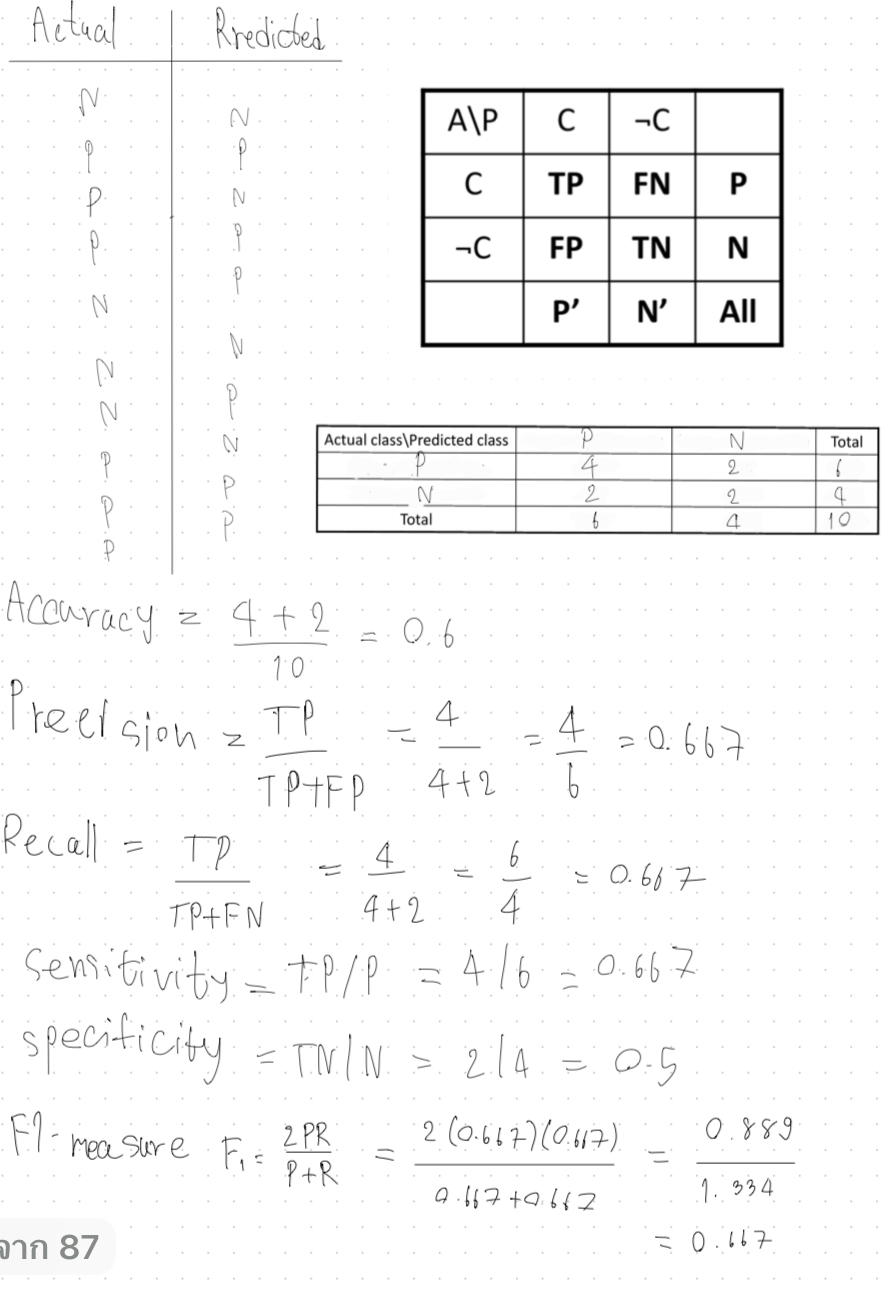 Actual Rredicted
N N
P P
P N
P P
N P
N N
N P
P N
P P
P P
A\P C ¬C
C TP FN P
¬C FP TN N
P’ N’ All
Actual class\Predicted class P N Total
P 4 2 6
N 2 2 4
Total 6 4 10
Accuracy = 4 + 2 / 10 = 0.6
= TP / TP+FP = 4 / 4+2 = 4 / 6 = 0.667
Recall = TP / TP+FN = 4 / 4+2 = 6 / 4 = 0.667
Sensitivity = TP/P = 4/6 = 0.667
specificity = TN/N = 2/4 = 0.5
F1-measure F1 = 2PR / P+R = 2(0.667)(0.667) / 0.667+0.667 = 0.889 / 1.334
= 0.667
จาก 87